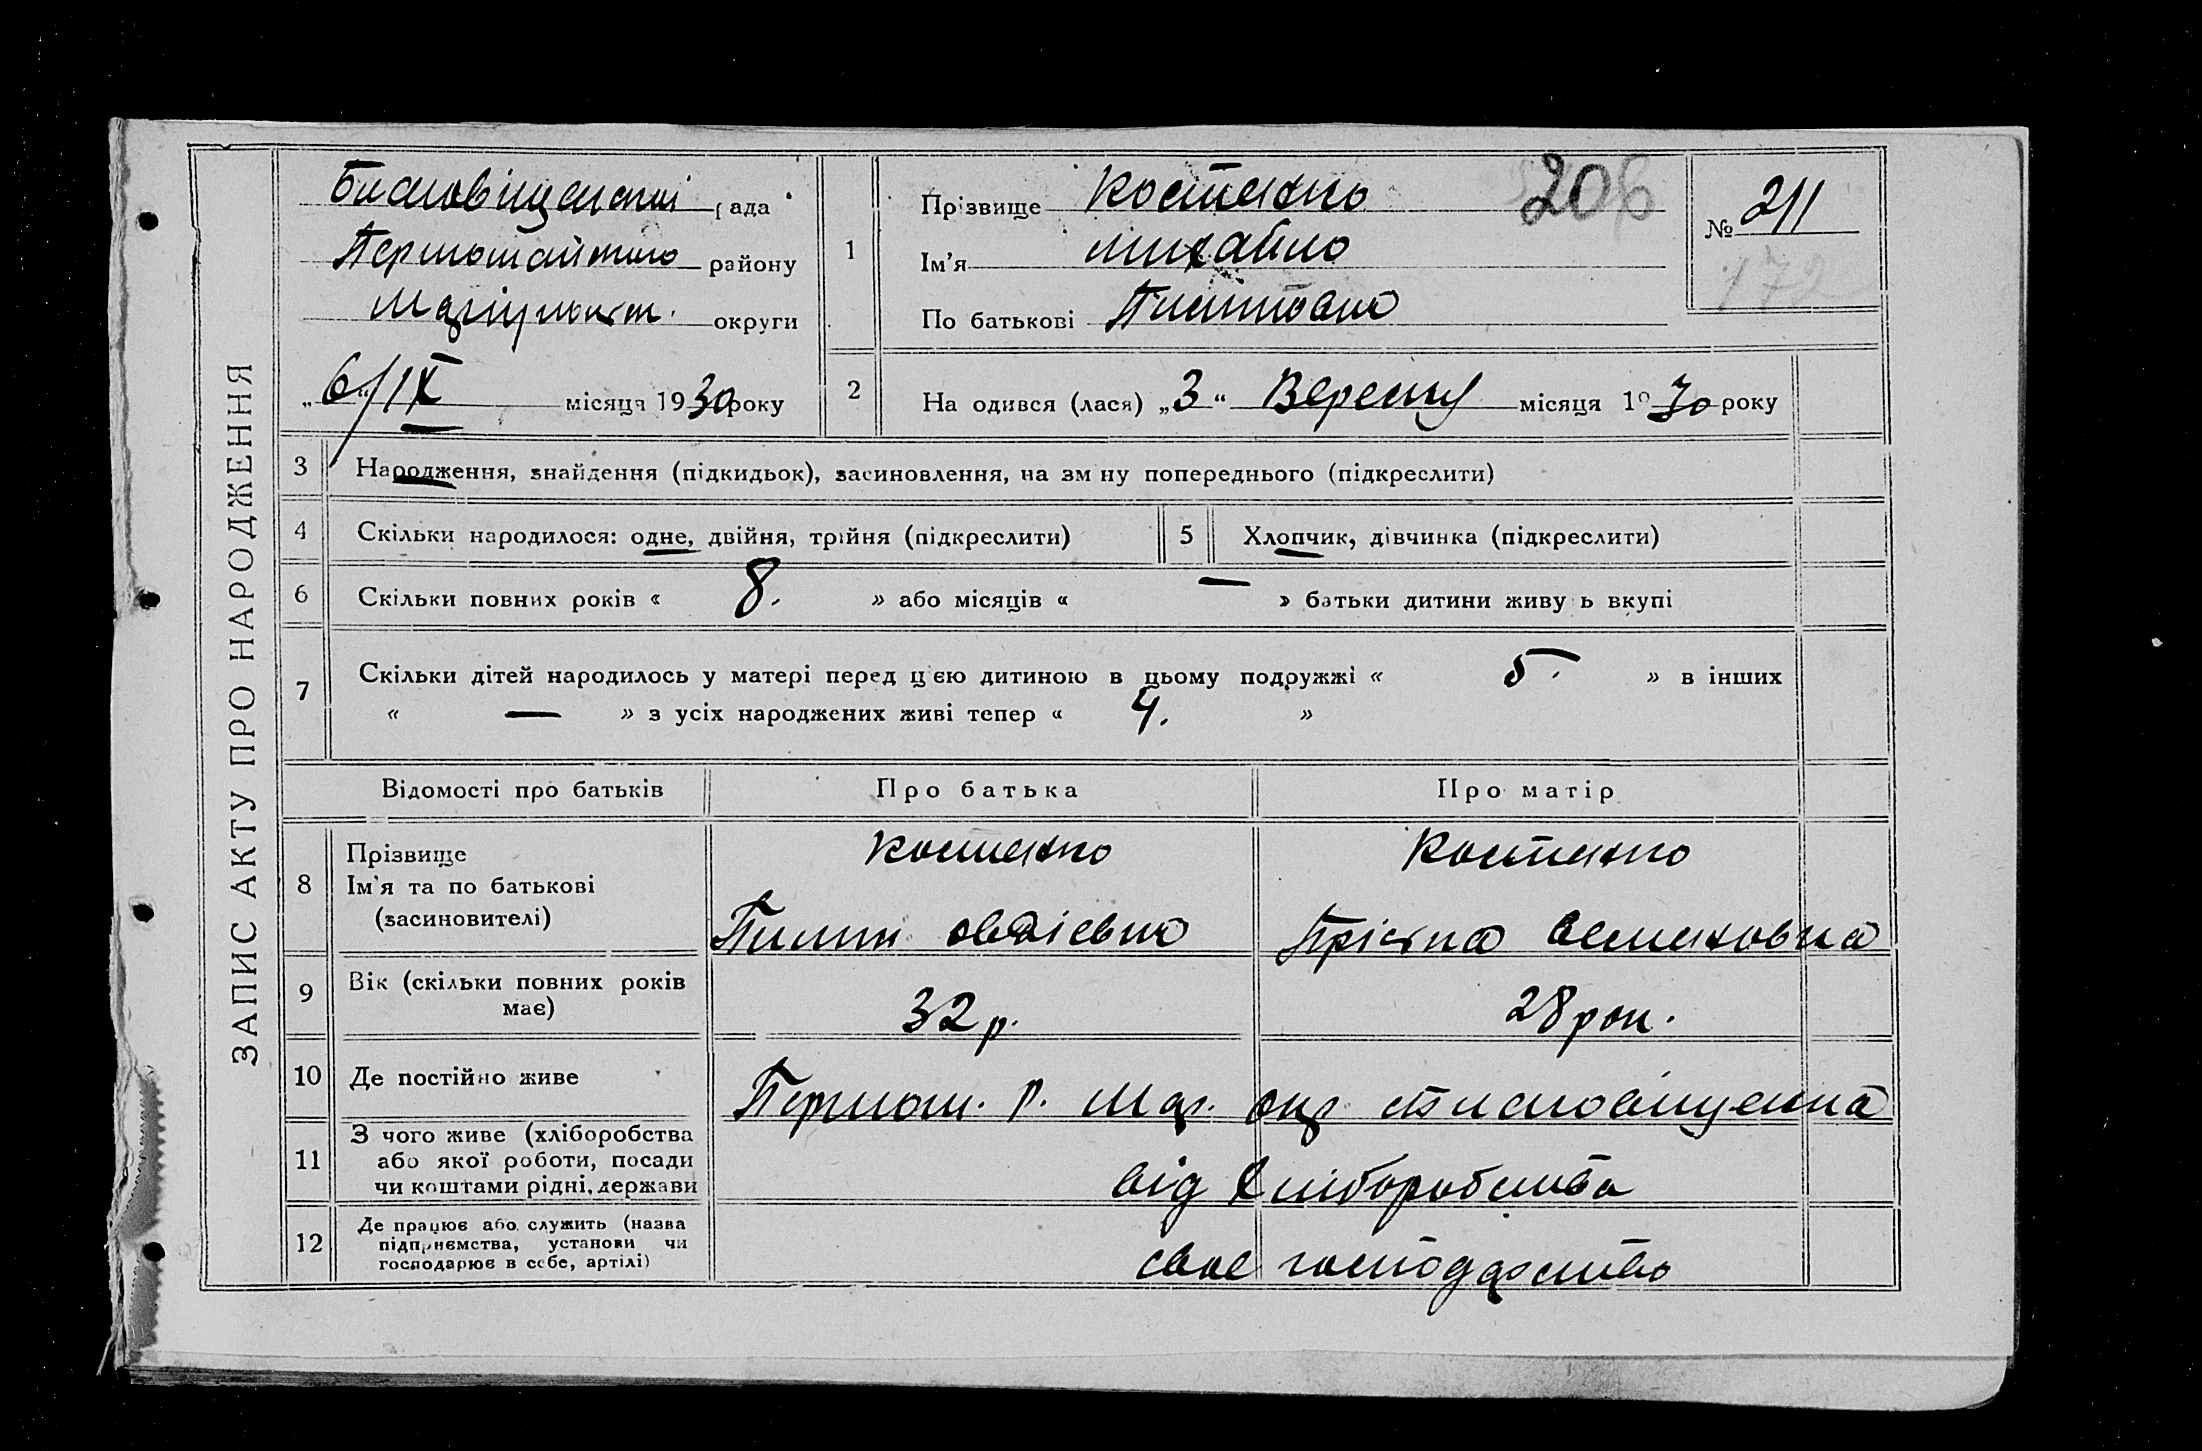 ЗАПИС АКТУ ПРО НАРОДЖЕННЯ
рада
Першотравневого району
Маріупольськ. округи
„6“/IX місяця 1930 року
1
Прізвище Костенко
Ім'я Михайло
По батькові Пилипович
206
№ 211
172
2
На одився (лася) „3“ Вересня місяця 19 30 року
3 Народження, знайдення (підкидьок), засиновлення, на зм ну попереднього (підкреслити)
4 Скільки народилося: одне, двійня, трійня (підкреслити)
5 Хлопчик, дівчинка (підкреслити)
6 Скільки повних років « 8. » або місяців « — » батьки дитини живу ь вкупі
7 Скільки дітей народилось у матері перед цією дитиною в цьому подружжі « 5. » в інших
« — » з усіх народжених живі тепер « 4. »
Відомості про батьків Про батька Про матір
8 Прізвище
Ім'я та по батькові
(засиновителі)
Костенко Костенко
Пилип Семеновна
9 Вік (скільки повних років має)
32 р. 28 рок.
10 Де постійно живе
Першот. р. Мар. окр
11 З чого живе (хліборобства
або якої роботи, посади
чи коштами рідні, держави
від хліборобства
12 Де працює або служить (назва
підприємства, установи чи
господарює в себе, артілі)
своє господарство